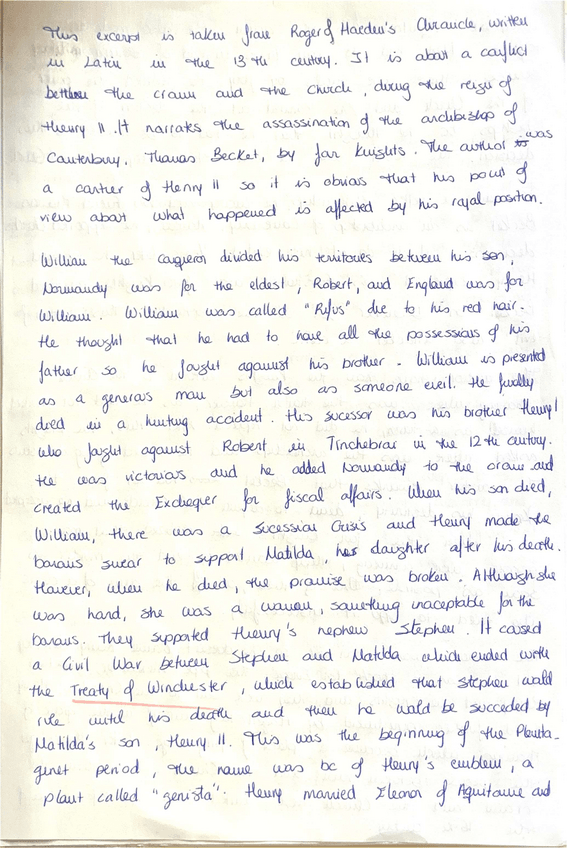 This excerpt is taken from Roger of Haeden's Chronicle, written
in Latin in the 13th century. It is about a conflict
between the crown and the Church, during the reign of
Henry II. It narrates the assassination of the archbishop of
Canterbury, Thomas Becket, by four Knights. The author was
a cortier of Henry II so it is obvious that his point of
view about what happened is affected by his royal position.
William the conqueror divided his territories between his son,
Normandy was for the eldest, Robert, and England was for
William. William was called "Rufus" due to his red hair.
He thought that he had to have all the possessions of his
father so he fought against his brother. William is presented
as a generous man but also as someone evil. He finally
died in a hunting accident. His sucessor was his brother Henry I
who fought against Robert in Tinchebrai in the 12th century.
He was victorious and he added Normandy to the crown and
created the Exchequer for fiscal affairs. When his son died,
William, there was a sucession Crisis and Henry made the
barons swear to support Matilda, his daughter after his death.
However, when he died, the promise was broken. Although she
was hard, she was a woman, something inaceptable for the
barons. They supported Henry's nephew Stephen. It caused
a Civil War between Stephen and Matilda which ended with
the Treaty of Winchester, which established that Stephen would
rule until his death and then he would be succeded by
Matilda's son, Henry II. This was the beginning of the Planta-
genet period, the name was bc of Henry's emblem, a
plant called "genista". Henry married Eleonor of Aquitaine and